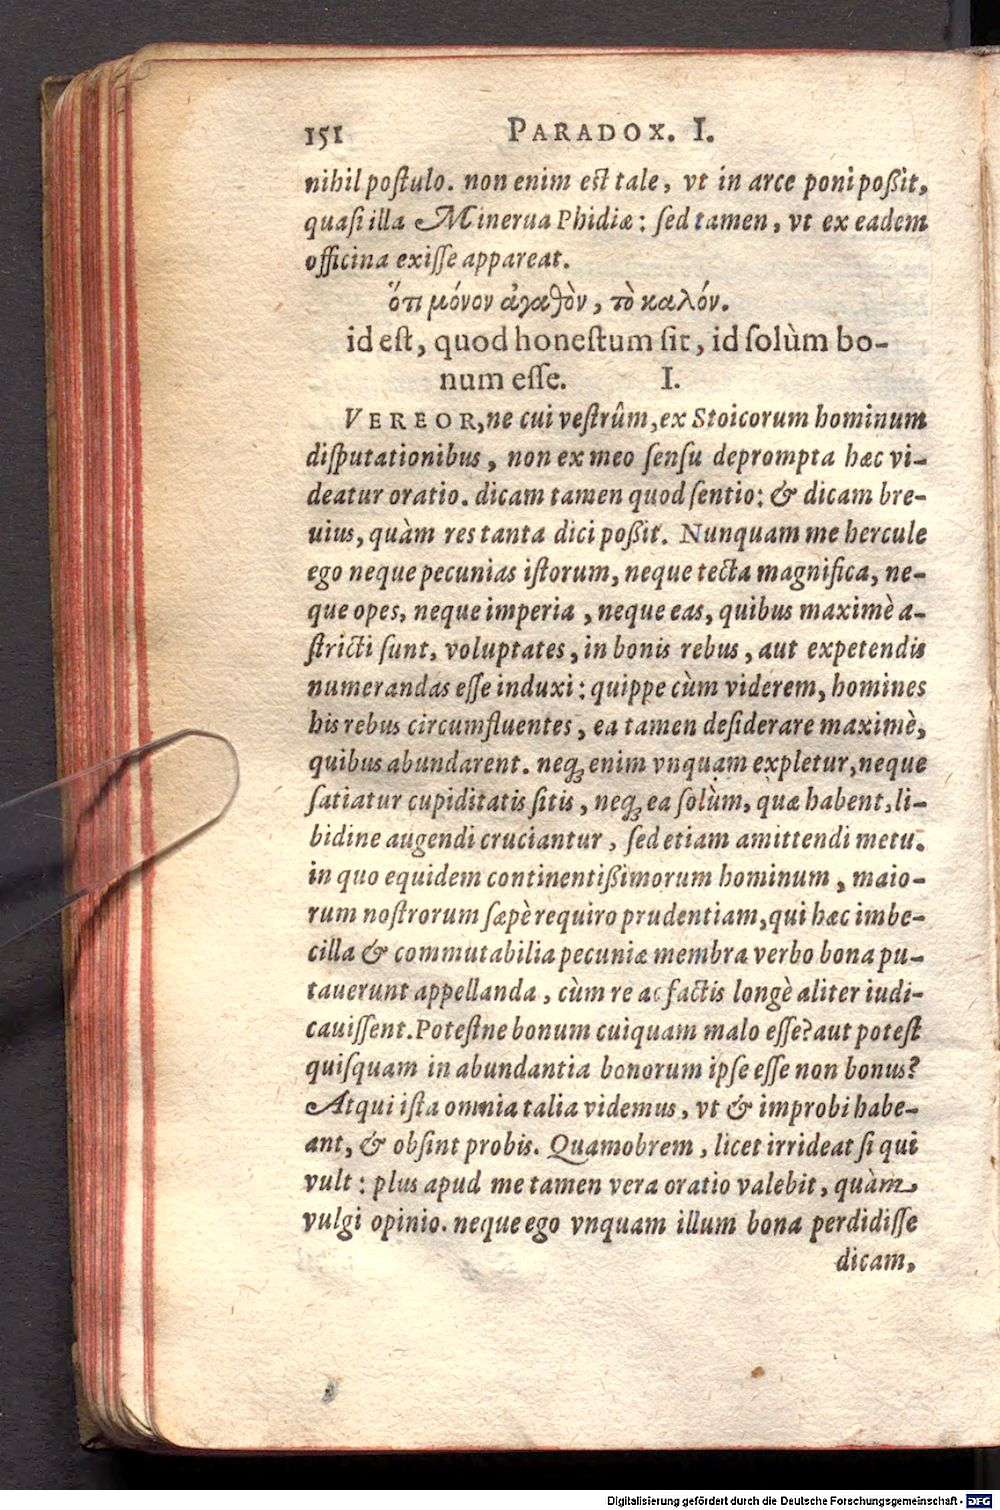 151 PARADOX. I.
nihil poſtulo. non enim est tale, vt in arce poni poßit,
quaſi illa Minerua Phidiæ: ſed tamen, vt ex eadem
officina exiſſe appareat.
ὅτι μόνον ἀγαθὸν, τὸ καλόν.
id eſt, quod honeſtum ſit, id ſolùm bo-
num eſſe. I.
VEREOR, ne cui veſtrûm, ex Stoicorum hominum
diſputationibus, non ex meo ſenſu deprompta hæc vi-
deatur oratio. dicam tamen quod ſentio: & dicam bre-
uius, quàm res tanta dici poßit. Nunquam me hercule
ego neque pecunias iſtorum, neque tecta magnifica, ne-
que opes, neque imperia, neque eas, quibus maximè a-
ſtricti ſunt, voluptates, in bonis rebus, aut expetendis
numerandas eſſe induxi: quippe cùm viderem, homines
his rebus circumfluentes, ea tamen deſiderare maximè,
quibus abundarent. neq; enim vnquam expletur, neque
ſatiatur cupiditatis ſitis, neq; ea ſolùm, quæ habent, li-
bidine augendi cruciantur, ſed etiam amittendi metu.
in quo equidem continentißimorum hominum, maio-
rum noſtrorum ſæpè requiro prudentiam, qui hæc imbe-
cilla & commutabilia pecuniæ membra verbo bona pu-
tauerunt appellanda, cùm re ac factis longè aliter iudi-
cauiſſent. Poteſtne bonum cuiquam malo eſſe? aut poteſt
quiſquam in abundantia bonorum ipſe eſſe non bonus?
Atqui iſta omnia talia videmus, vt & improbi habe-
ant, & obſint probis. Quamobrem, licet irrideat ſi qui
vult: plus apud me tamen vera oratio valebit, quàm
vulgi opinio. neque ego vnquam illum bona perdidiſſe
dicam,
Digitalisierung gefördert durch die Deutsche Forschungsgemeinschaft - DFG